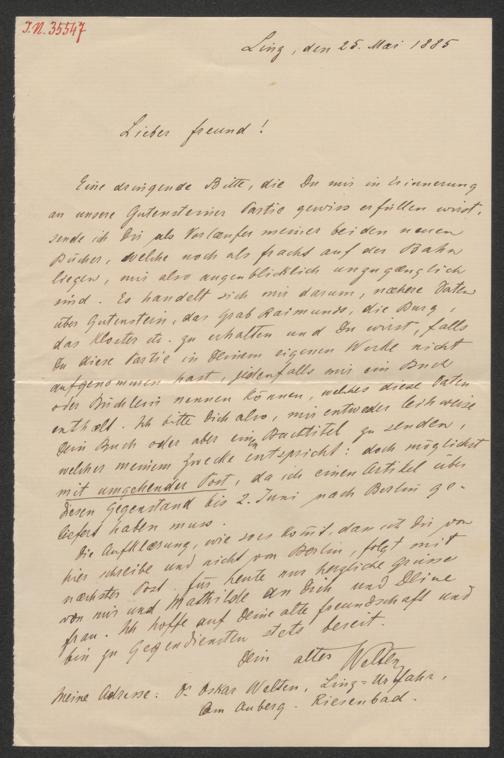 J.N. 35547
Linz, den 25. Mai 1885
Lieber Freund!
Eine dringende Bitte, die Du mir in Erinnerung
an unsere Gutensteiner Partie gewiss erfüllen wirst,
sende ich Dir als Vorlaeufer meiner beiden neuen
Bücher, welche noch als Fracht auf der Bahn
liegen, mir also augenblicklich unzugaenglich
sind. Es handelt sich mir darum, naehere Daten
über Gutenstein, das Grab Raimunds, die Burg,
das Kloster etc. zu erhalten und Du wirst, falls
Du diese Partie in Deinem eigenen Werke nicht
aufgenommen hast, jedenfalls mir ein Buch
oder Büchlein nennen können, welches diese Daten
enthaelt. Ich bitte Dich also, mir entweder leihweise
Dein Buch oder aber einen Buchtitel zu senden,
welcher meinem Zwecke entspricht: doch möglichst
mit umgehender Post, da ich einen Artikel über
diesen Gegenstand bis 2. Juni nach Berlin ge-
liefert haben muss.
Die Aufklaerung, wie es komt, dass ich Dir von
hier schreibe und nicht von Berlin, folgt mit
naechster Post. Für heute nur herzliche Grüsse
von mir und Mathilde an Dich und Deine
Frau. Ich hoffe auf Deine alte Freundschaft und
bin zu Gegendiensten stets bereit.
Dein alter Welten
Meine Adresse: Dr Oskar Welten, Linz=Urfahr,
Am Auberg. Riesenbad.